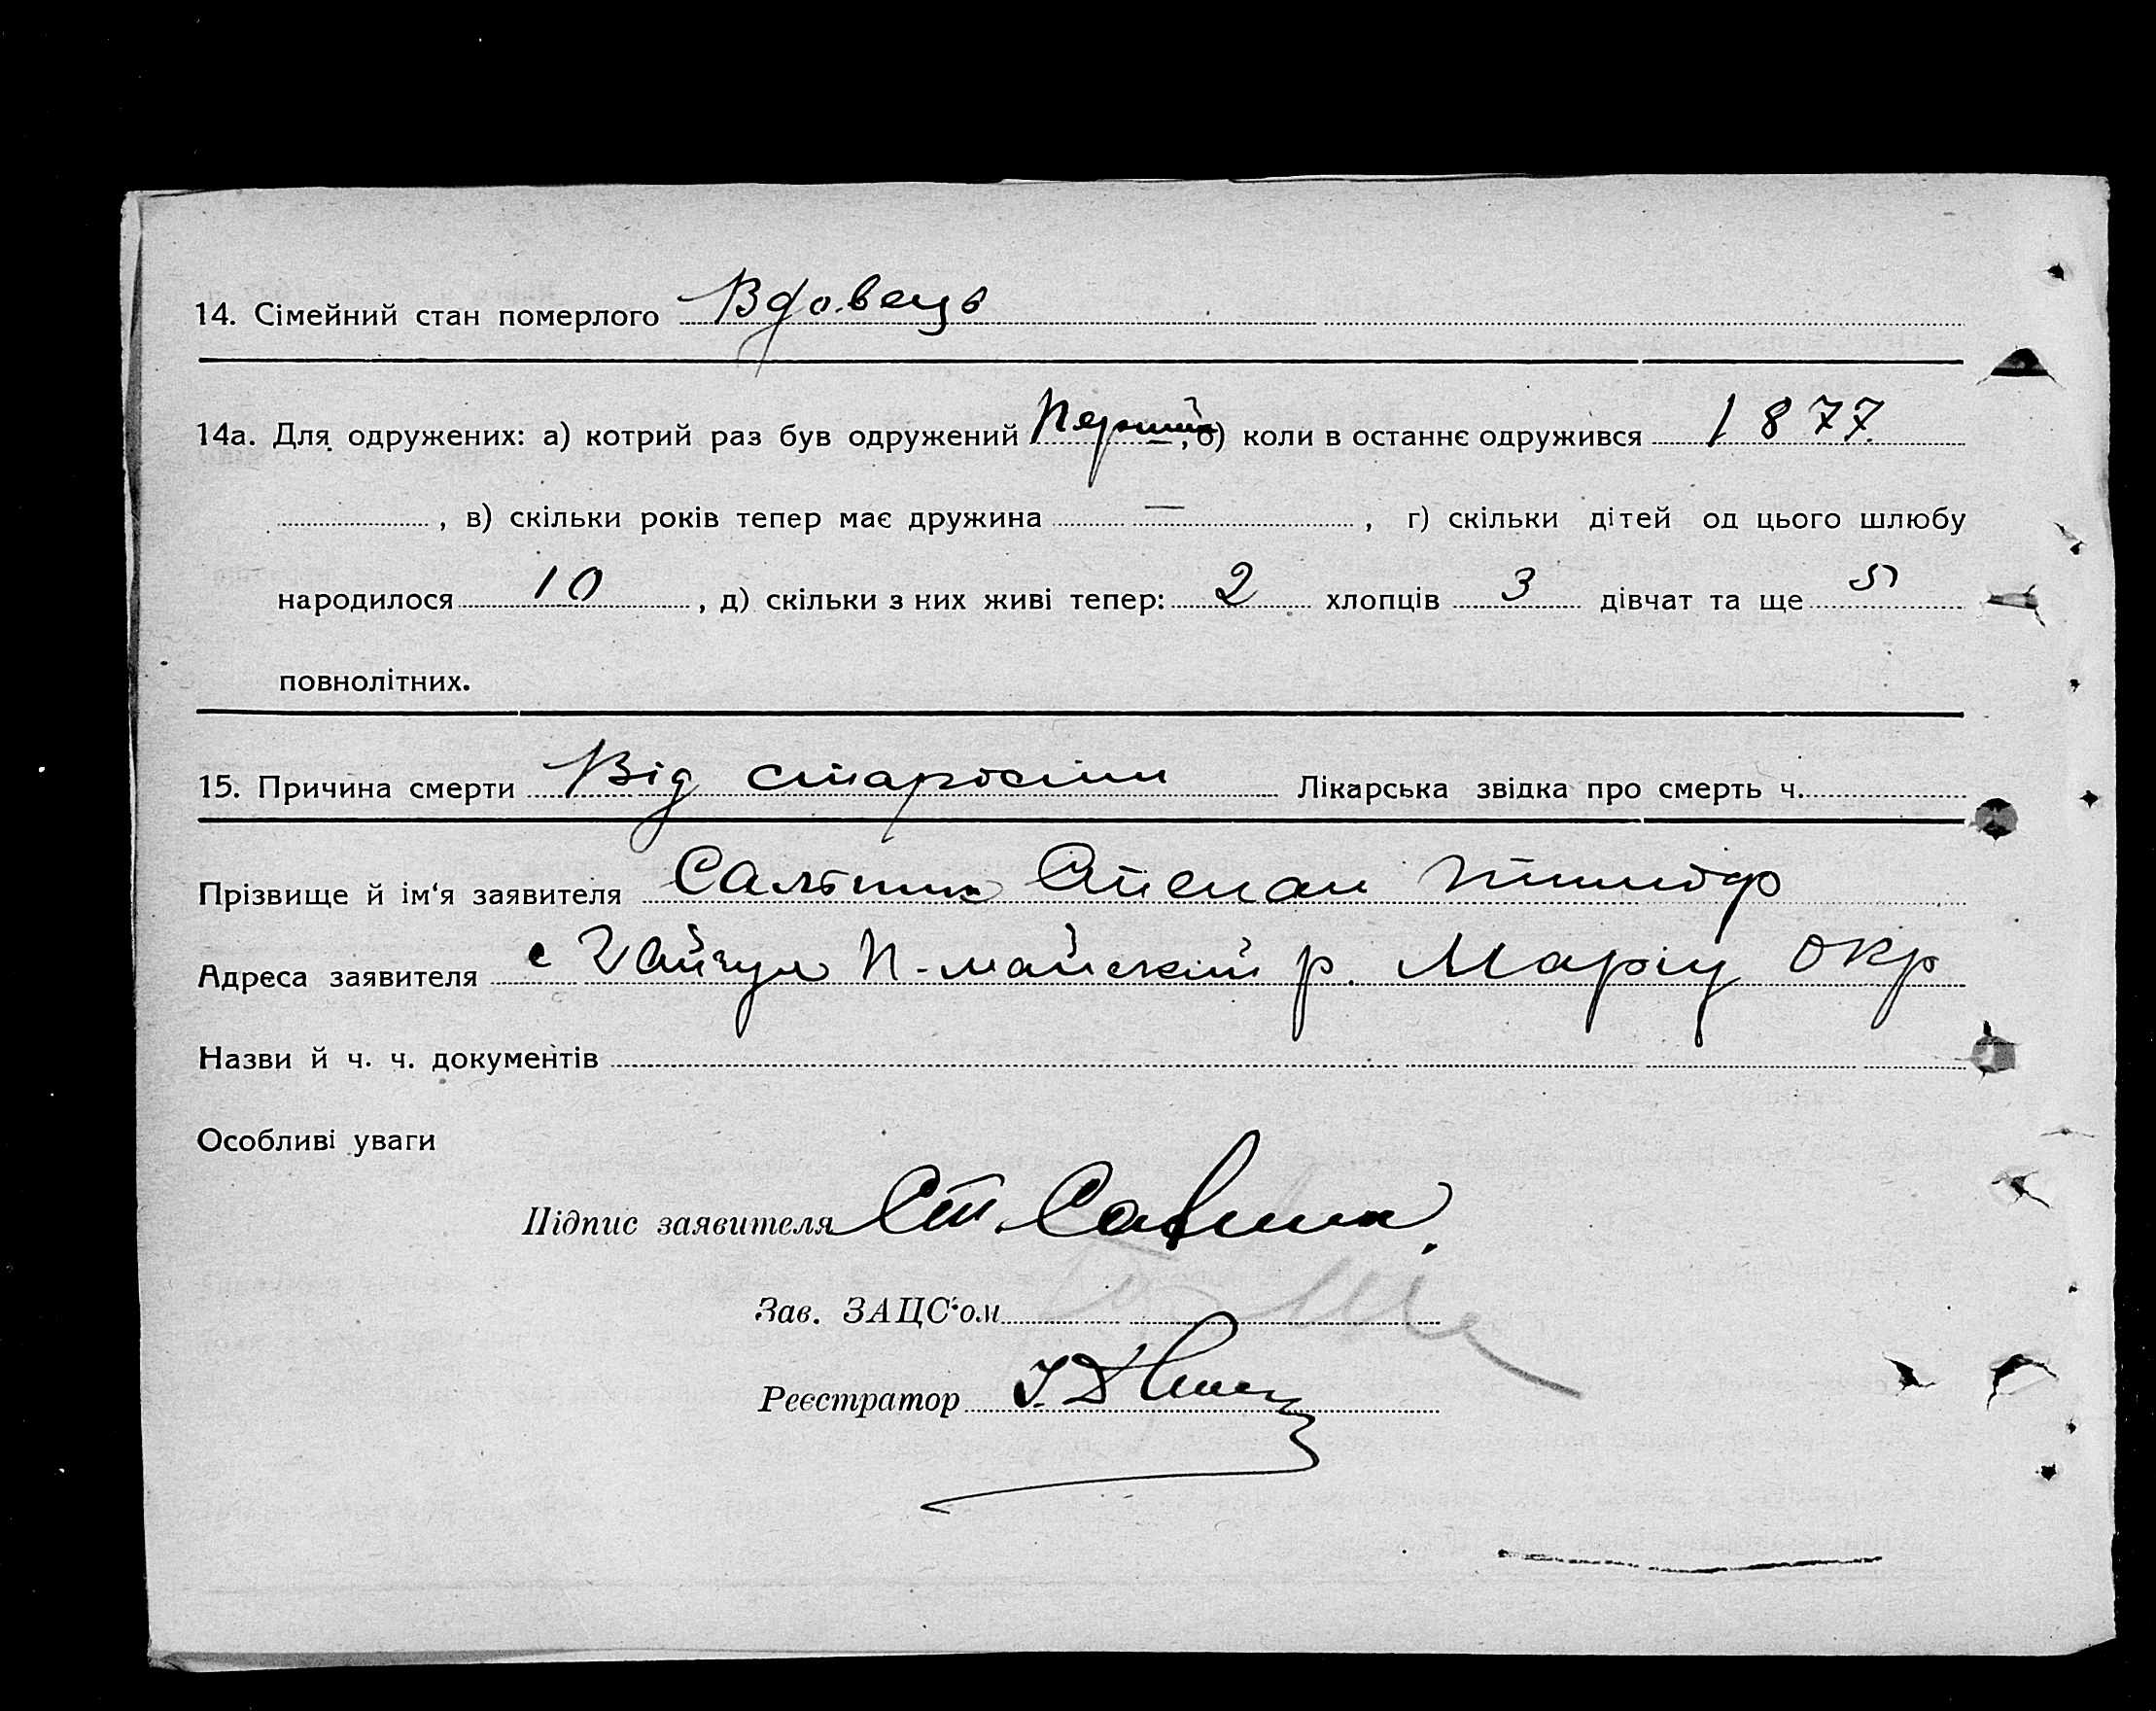 14. Сімейний стан померлого Вдовець
14а. Для одружених: а) котрий раз був одружений Перший, б) коли в останнє одружився 1877
, в) скільки років тепер має дружина —, г) скільки дітей од цього шлюбу
народилося 10, д) скільки з них живі тепер: 2 хлопців 3 дівчат та ще 5
повнолітних.
15. Причина смерти Від старости Лікарська звідка про смерть ч.
Прізвище й ім‘я заявителя Степан
Адреса заявителя с Гайчул П-майський р. Маріу окр
Назви й ч. ч. документів
Особливі уваги
Підпис заявителя Ст.
Зав. ЗАЦС‘ом
Реєстратор